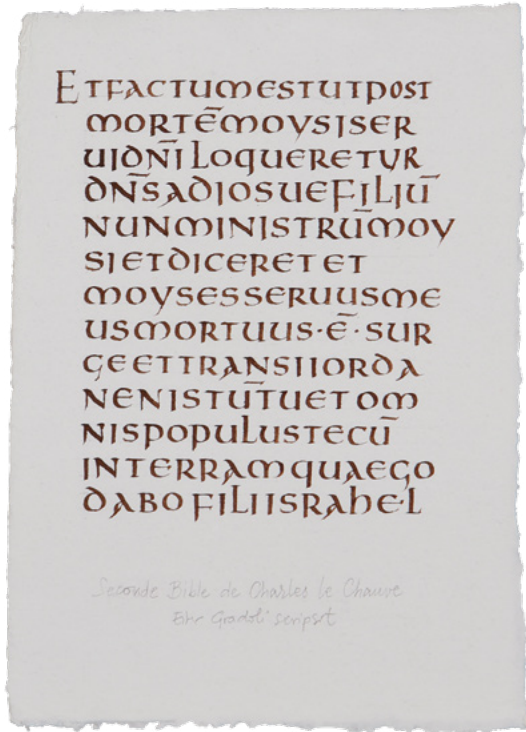 ETFACTUMESTUTPOST
MORTĒMOYSISER
UIDNĪLOQUERETUR
DN̄SADIOSUEFILIŪ
NUNMINISTRŪMOY
SIETDICERET ET
MOYSESSERUUSME
USMORTUUS·Ē·SUR
GEETTRANSIIORDA
NENISTŪTUETOM
NISPOPULUSTECŪ
INTERRAMQUAEGO
DABO FILIISRAHEL
Seconde Bible de Charles le Chauve
scripsit